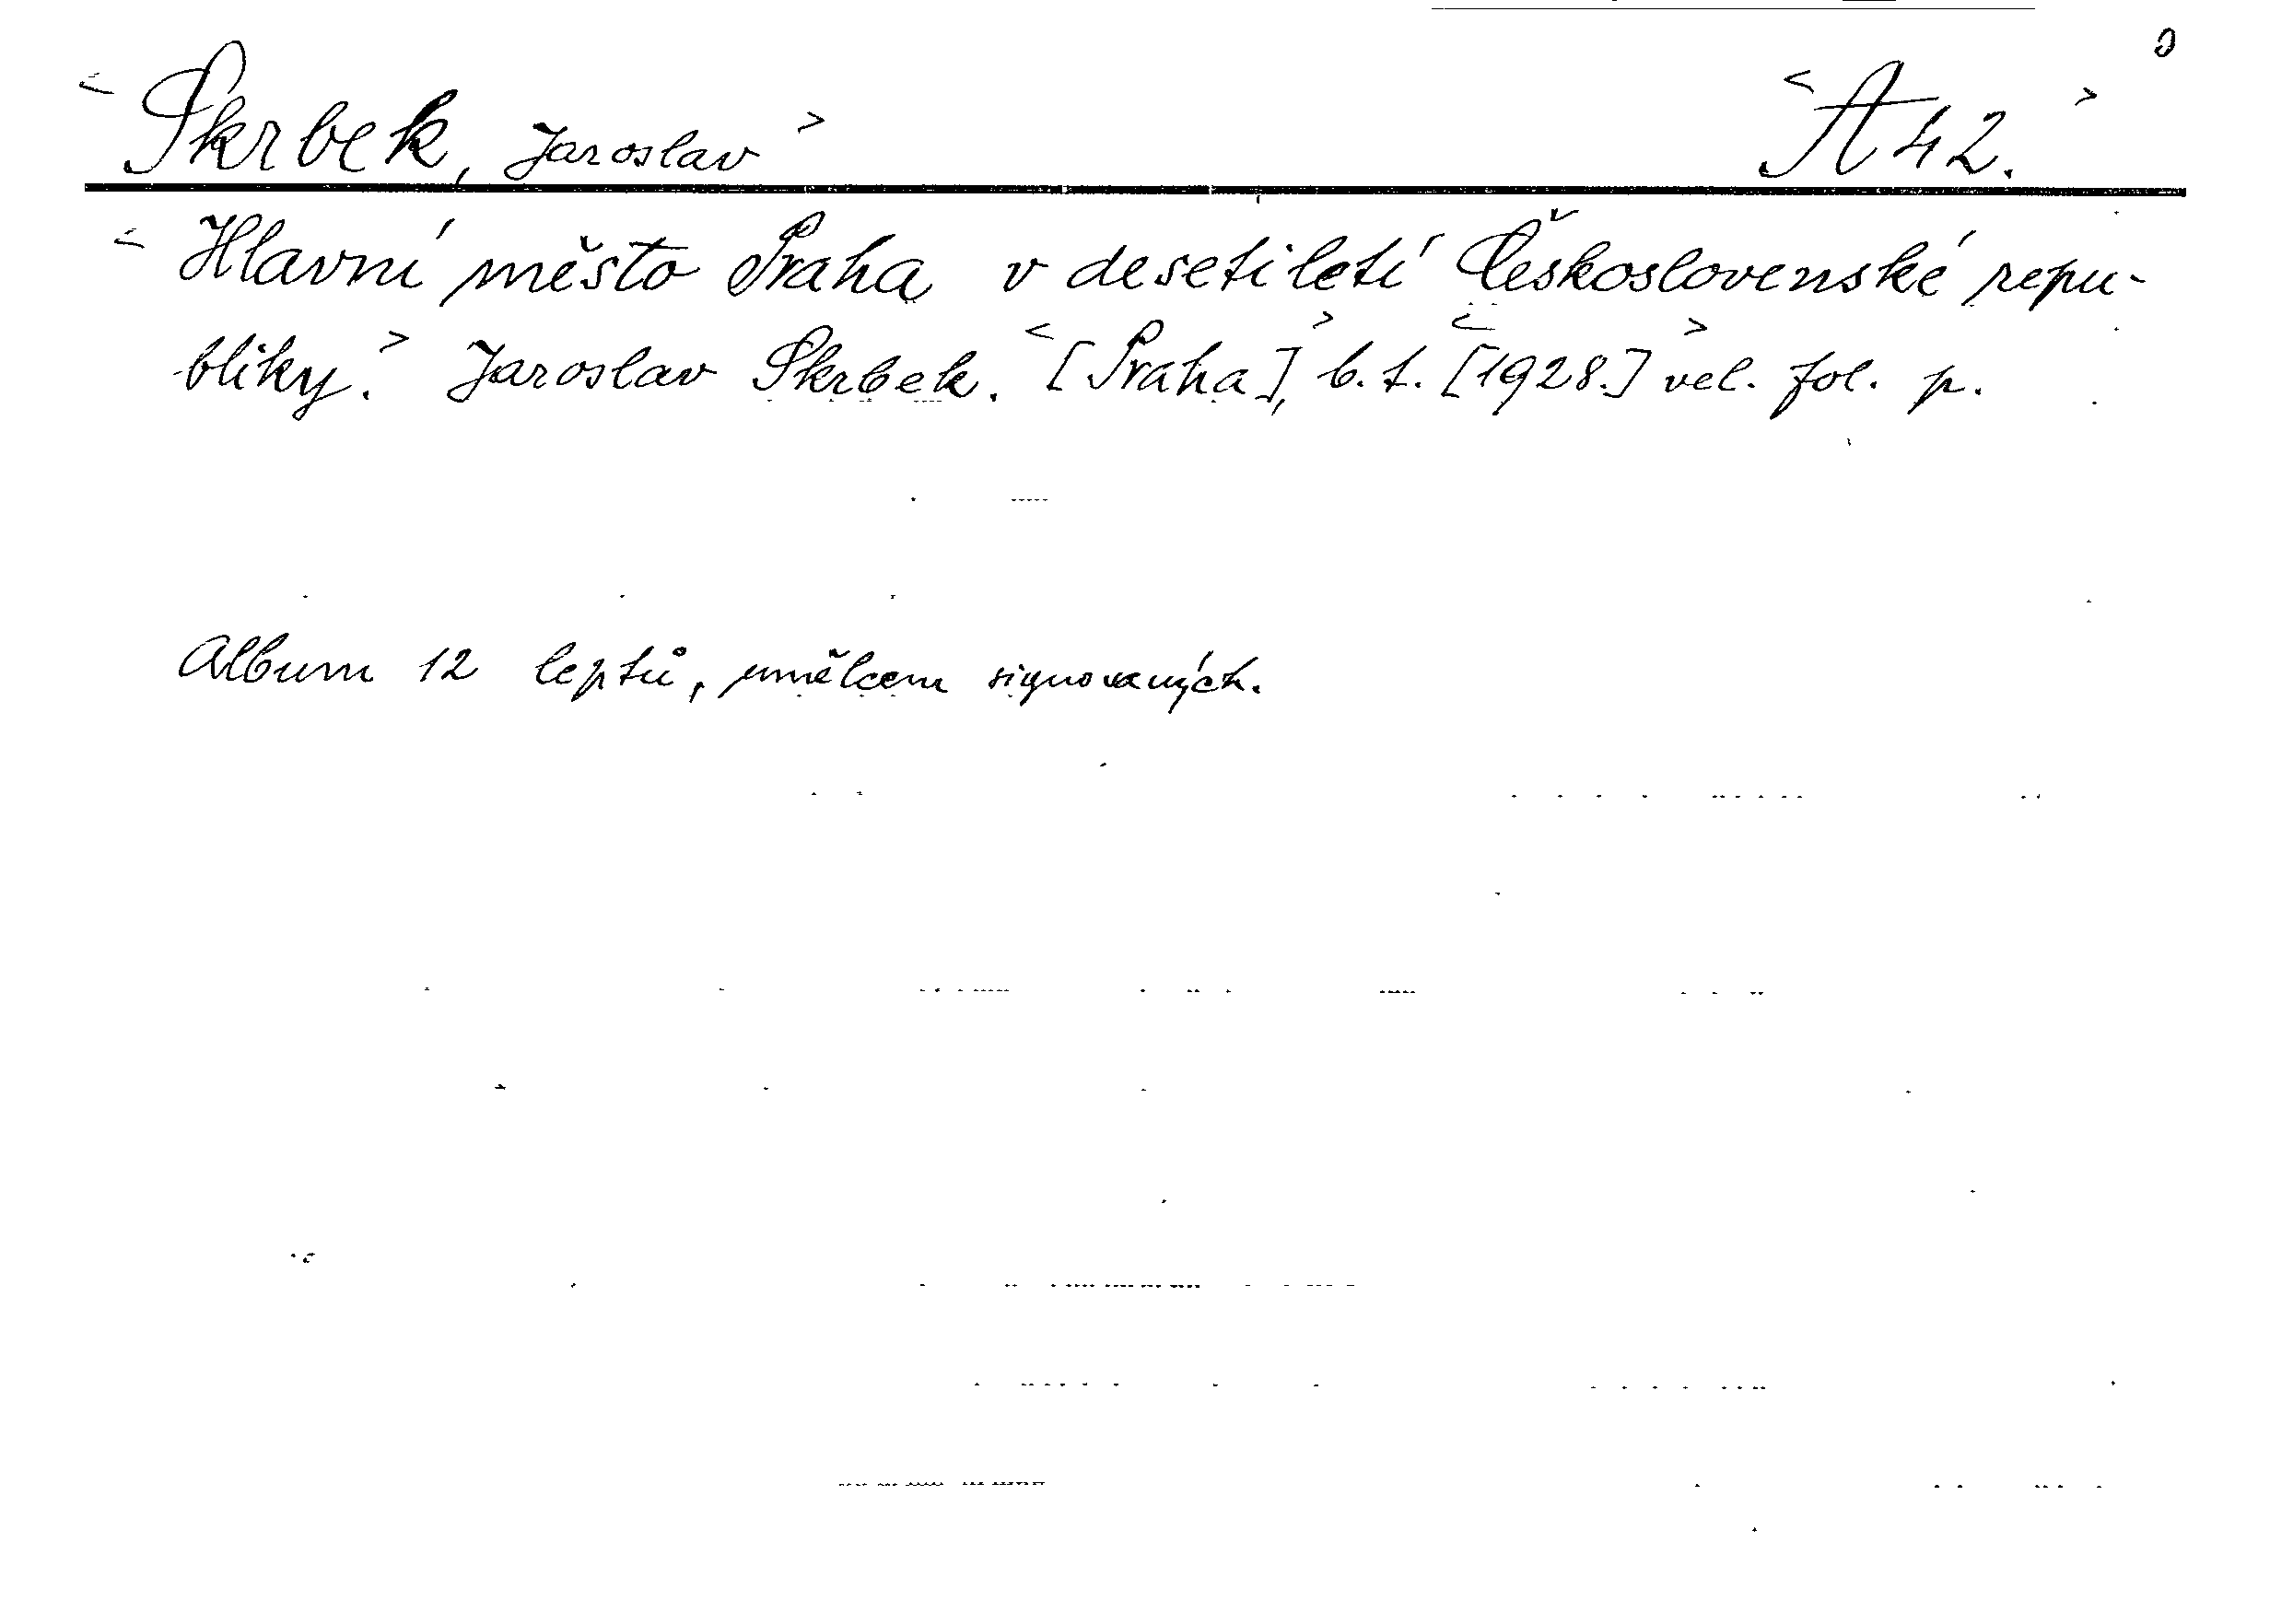 <Skrbek, Jaroslav> <A 42.>
<Hlavní město Praha v desetiletí Československé repu-
bliky.> Jaroslav Skrbek. <[Praha],> b. t. <[1928.]> vel. fol. p.
Album 12 leptů, umělcem signovaných.